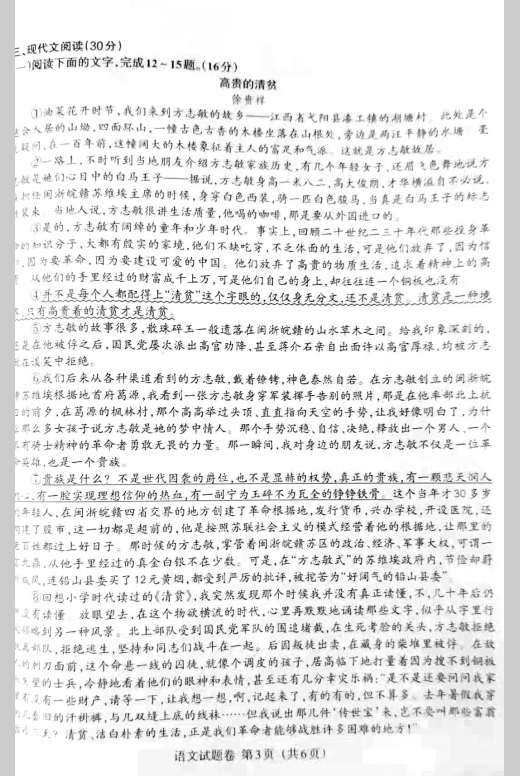 三、现代文阅读(30分)
一)阅读下面的文字,完成12~15题。(16分)
高贵的清贫
徐贵祥
①油菜花开时节,我们来到方志敏的故乡——江西省弋阳县漆工镇的湖塘村 此处是个
合人居的山坳,四面环山,一幢古色古香的木楼坐落在山根处,旁边是两汪平静的水塘 毫
疑问,在一百年前,这幢阔大的木楼象征着主人的富足和气派。这就是方志敏故居。
②一路上,不时听到当地朋友介绍方志敏家族历史,有几个年轻女子,还眉飞色舞地说方
敏是她们心目中的白马王子——据说,方志敏身高一米八二,高大俊朗,才华横溢自不必说,
担任闽浙皖赣苏维埃主席的时候,身穿白色西装,骑一匹白色骏马,当真是白马王子的标志
装束。当地人说,方志敏很讲生活质量,他喝的咖啡,那是要从外国进口的。
③是的,方志敏有阔绰的童年和少年时代。事实上,回顾二十世纪二三十年代那些投身革
的知识分子,大都有殷实的家境,他们不缺吃穿,不乏体面的生活,可是他们放弃了,因为信
,因为要革命,因为要建设可爱的中国。他们放弃了高贵的物质生活,追求着精神上的高
从他们的手里经过的财富成千上万,可是他们自己的身上,却往往连一个铜板也没有
④并不是每个人都配得上“清贫”这个字眼的,仅仅身无分文,还不是清贫。清贫是一种境
,只有高贵着的清贫才是清贫。
⑤方志敏的故事很多,散珠碎玉一般遗落在闽浙皖赣的山水草木之间。给我印象深刻的,
是在他被俘之后,国民党屡次派出高官劝降,甚至蒋介石亲自出面许以高官厚禄,均被方志
在谈笑中拒绝。
⑥我们后来从各种渠道看到的方志敏,戴着镣铐,神色泰然自若。在方志敏创立的闽浙皖
苏维埃根据地首府葛源,我看到一张方志敏身穿军装挥手告别的照片,那是在他率部北上抗
的前夕,在葛源的枫林村,那个高高举过头顶、直直指向天空的手势,让我好像明白了,为什
那么多女孩子说方志敏是她的梦中情人。那个手势沉稳、自信、决绝,释放出一个男人、一个
有骑士精神的革命者勇敢无畏的力量。那一瞬间,我对身边的朋友说,方志敏不仅是一位革
英雄,也是一个贵族。
⑦贵族是什么?不是世代因袭的爵位,也不是显赫的权势,真正的贵族,有一颗悲天悯人
心,有一腔实现理想信仰的热血,有一副宁为玉碎不为瓦全的铮铮铁骨。这个当年才30多岁
年轻人,在闽浙皖赣四省交界的地方创建了革命根据地,发行货币,兴办学校,开设医院,还
建了股市,这一切都是超前的,他是按照苏联社会主义的模式经营着他的根据地,让那里的
百姓都过上好日子。那时候的方志敏,掌管着闽浙皖赣苏区的政治、经济、军事大权,可谓一
九鼎,从他手里经过的真金白银不在少数。可是,在“方志敏式”的苏维埃政府内,节俭却蔚
成风,连铅山县委买了12元黄烟,都受到严厉的批评,被挖苦为“好阔气的铅山县委”
⑧回想小学时代读过的《清贫》,我突然发现那个时候我并没有真正读懂,不,几十年后仍
没有读懂 放眼望去,在这个物欲横流的时代,心里再默默地诵读那些文字,似乎从字里行
到另一种风景。北上部队受到国民党军队的围追堵截,在生死考验的关头,方志敏拒绝
部队,拒绝逃生,坚持和同志们战斗在一起。后因叛徒出卖,在藏身的柴堆里被俘。在敌
的刺刀面前,这个命悬一线的囚徒,就像个调皮的孩子,居高临下地打量着因为搜不到铜板
的士兵,冷静地看着他们的眼神和表情,甚至还有几分幸灾乐祸:“是不是还要问问我家
有没有一些财产,请等一下,让我想一想,啊,记起来了,有的有的,但不算多。去年暑假我穿
几套旧的汗褂裤,与几双缝上底的线袜……但我说出那几件‘传世宝’来,岂不要叫那些富翁
三天?清贫,洁白朴素的生活,正是我们革命者能够战胜许多困难的地方!”
语文试题卷 第3页 (共6页)